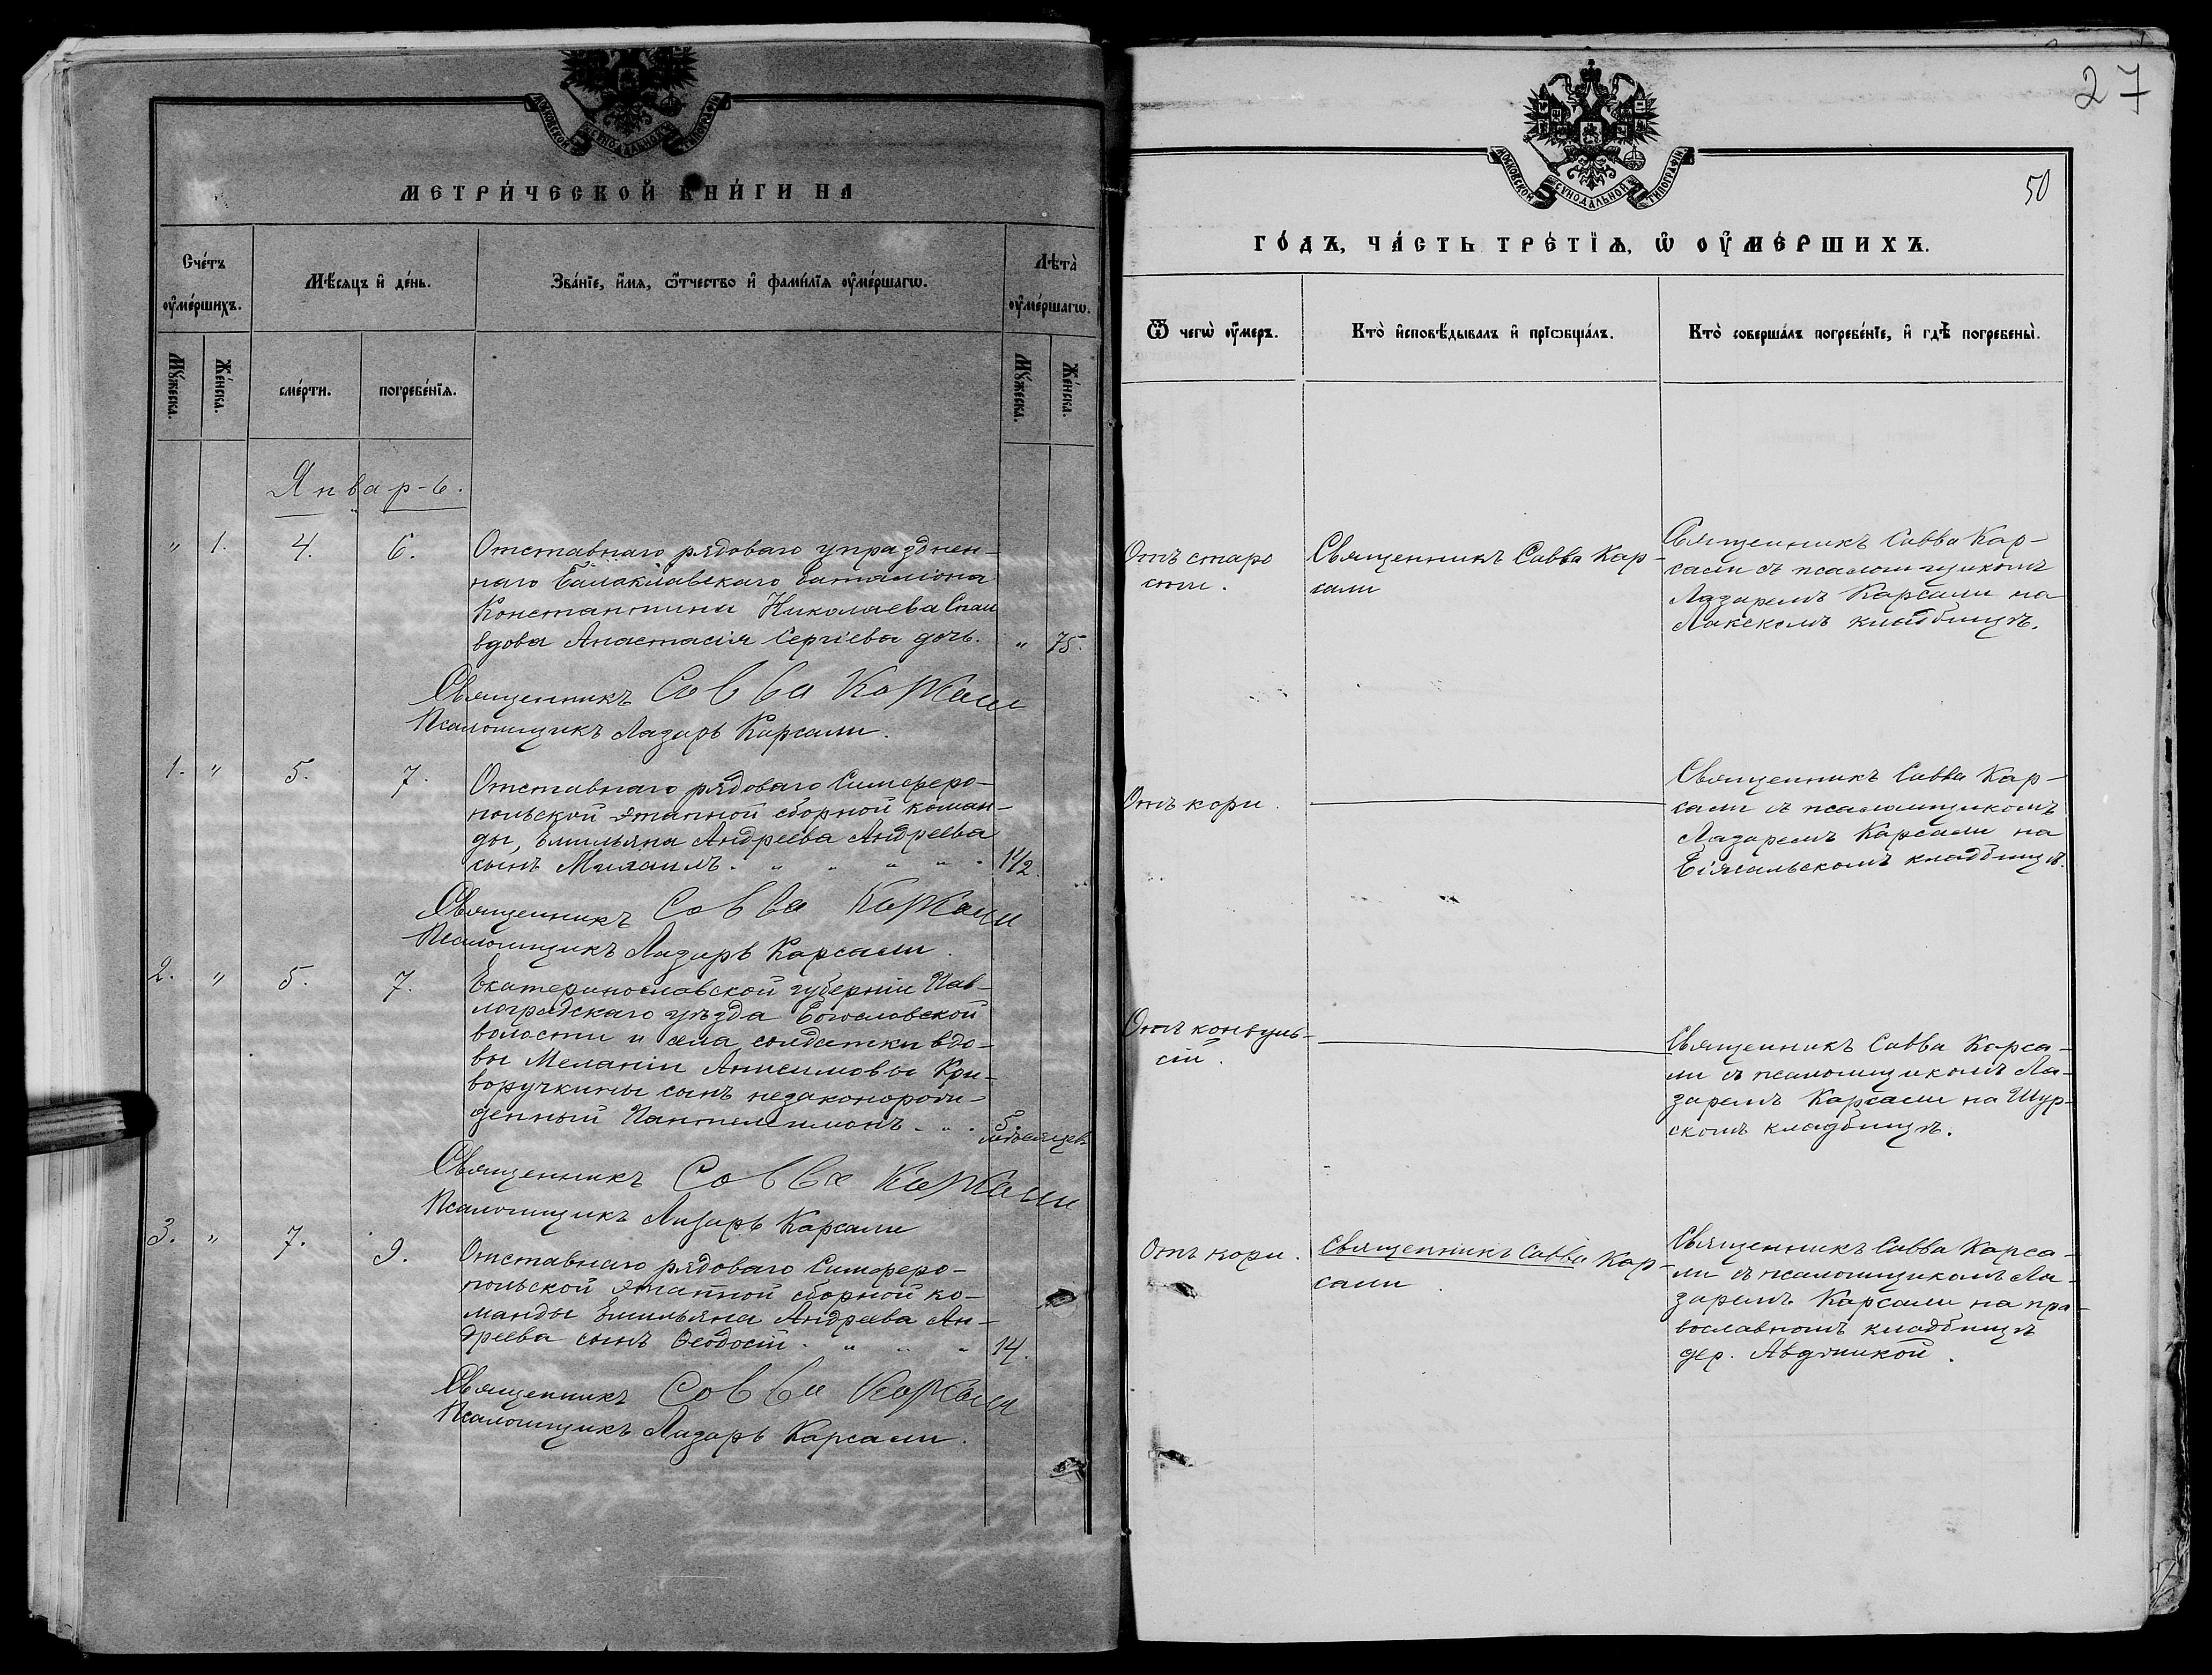 27
50
МОСКОВСКОЙ СѴНОДАЛЬНОЙ ТИПОГРАФІИ
МЕТРИ́ЧЕСКОЙ КНИ́ГИ НА
Сче́тъ ᲂу҆ме́ршихъ.
Мѣ́сяцъ и҆ де́нь.
Зва́нїе, и҆́мѧ, ѻ҆́тчество и҆ фами́лїѧ ᲂу҆ме́ршагѡ.
Лѣта̀ ᲂу҆ме́ршагѡ.
Мꙋ́жеска.
Же́нска.
сме́рти.
погребе́нїѧ.
Мꙋ́жеска.
Же́нска.
Январ-ь.
" 1. 4. 6. Отставнаго рядоваго упразднен-
наго Балаклавскаго баталіона
Константина Николаева
вдова Анастасія Сергіева дочь. " 75.
Священникъ Савва Карсали
Псаломщикъ Лазарь Карсали.
1. " 5. 7. Отставнаго рядоваго Симферо-
польской этапной сборной коман-
ды, Емильяна Андреева Андреева
сынъ Михаилъ. " " " " 1½.
Священникъ Савва Карсали
Псаломщикъ Лазарь Карсали.
2. " 5. 7. Екатеринославской губерніи Пав-
лоградскаго уѣзда Богословской
волости и села, солдатки вдо-
вы Меланіи Анисимовы Кри-
воручкины сынъ незаконорож-
денный Пантелеимонъ. " . 5. мѣсяцев
Священникъ Савва Карсали
Псаломщикъ Лазарь Карсали
3. " 7. 9. Отставнаго рядоваго Симферо-
польской этапной сборной ко-
манды Емильяна Андреева Ан-
дреева сынъ Ѳеодосій. " " " 14.
Священникъ Савва Карсали
Псаломщикъ Лазарь Карсали.
МОСКОВСКОЙ СѴНОДАЛЬНОЙ ТИПОГРАФІИ
ГО́ДЪ, ЧА́СТЬ ТРЕ́ТЇѦ, Ѡ҆ ОУ҆МЕ́РШИХЪ.
Ѿ чегѡ̀ ᲂу҆́меръ.
Кто̀ и҆сповѣ́дывалъ и҆ прїѡбща́лъ.
Кто̀ соверша́лъ погребе́нїе, и҆ гдѣ̀ погребены̀.
Отъ старо
сти.
Священникъ Савва Кар-
сали
Священникъ Савва Кар-
сали съ псаломщикомъ
Лазаремъ Карсали на
кладбищѣ.
Отъ кори.
Священникъ Савва Кар-
сали съ псаломщикомъ
Лазаремъ Карсали на
кладбищѣ.
Отъ конвуль-
сій.
Священникъ Савва Карса-
ли съ псаломщикомъ Ла-
заремъ Карсали на Шур-
скомъ кладбищѣ.
Отъ кори.
Священникъ Савва Кар-
сали
Священникъ Савва Карса-
ли съ псаломщикомъ Ла-
заремъ Карсали на пра-
вославномъ кладбищѣ
дер.